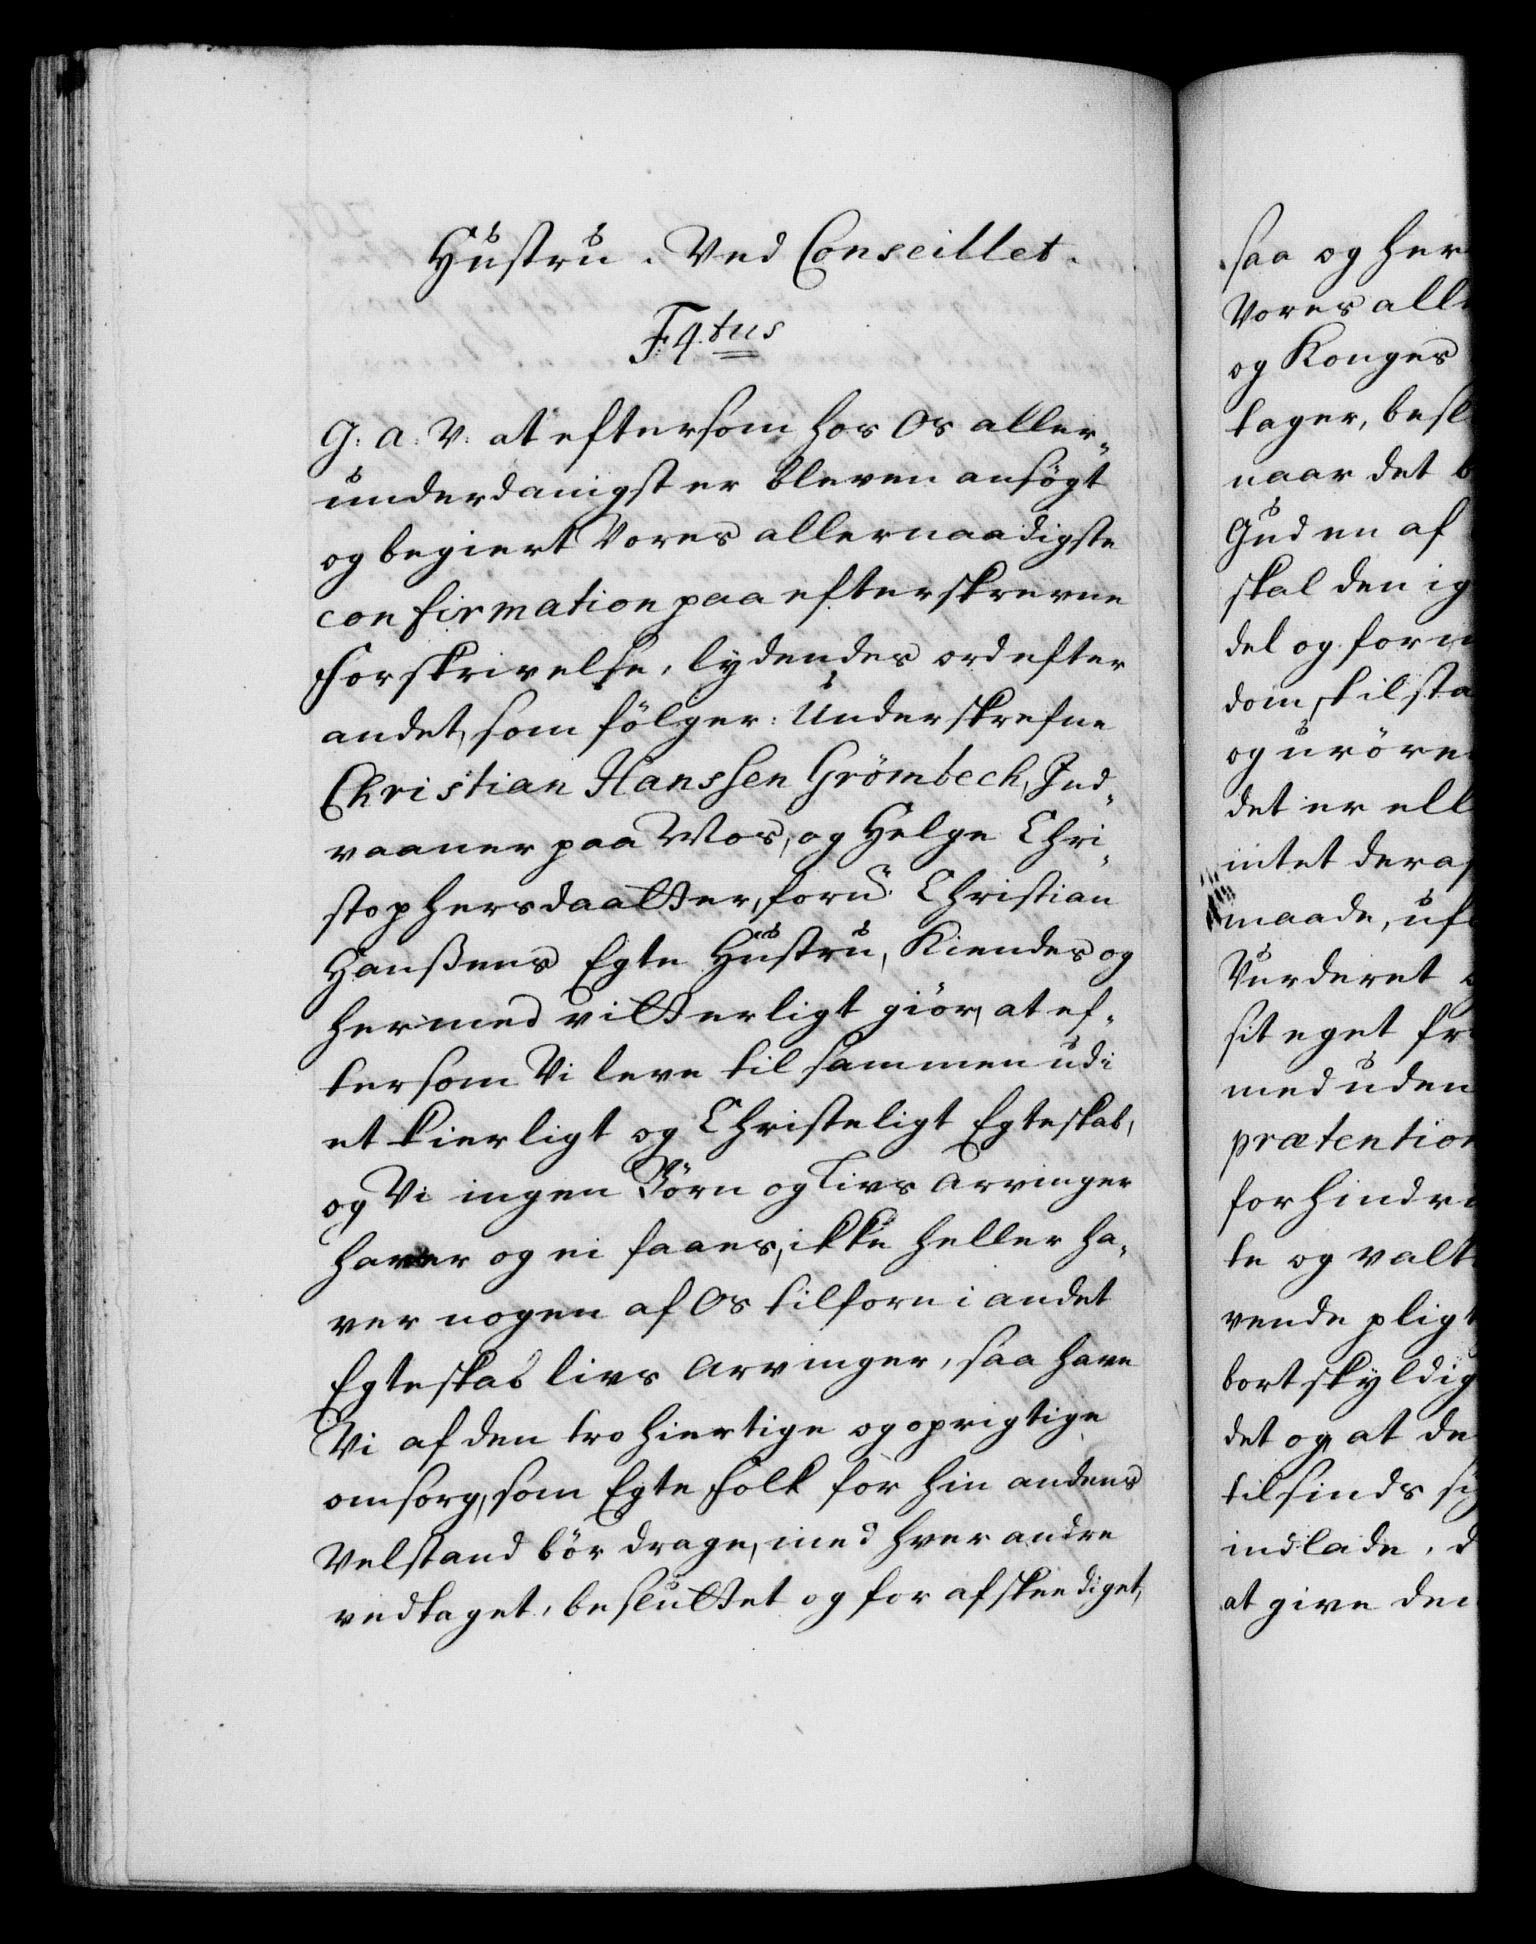 Hustru. Ved Conseillet.
F: 4.tus
G: A: V: at eftersom hos Os aller-
underdanigst er bleven ansögt
og begiert Vores allernaadigste
confirmation paa efterskrevne
Forskrivelse, lydendes ord efter
andet, som fölger: Underskrefne
Christian Hanssen Grömbech, Ind-
vaaner paa Mos, og Helge Chri-
stophersdaatter, forn: Christian
Hanßens Egte Hustru, Kiendes og
hermed vitterligt giör, at ef-
tersom Vi leve tilsammen udi
et kierligt og Christeligt Egteskab,
og Vi ingen Börn og Livs Arvinger
haver og ei faaes, ikke heller ha-
ver nogen af Os tilforn i andet
Egteskab livs Arvinger, saa have
Vi af den trohiertige og oprigtige
omsorg, som Egte Folk for hin andens
Velstand bör drage, med hver andre
vedtaget, besluttet og for afskeediget,
saa og her
Vores all
og Konges
tager, besl
naar det b
Gud en af
skal den ig
del og form
dom, tilsta
og uröre
det er ell
intet deraf
maade, uf
Vurderet
sit eget fr
med uden
prætention
forhindr
te og valt
vende pligt
bortskyldig
det og at de
tilsinds sig
indlade, d
at give den